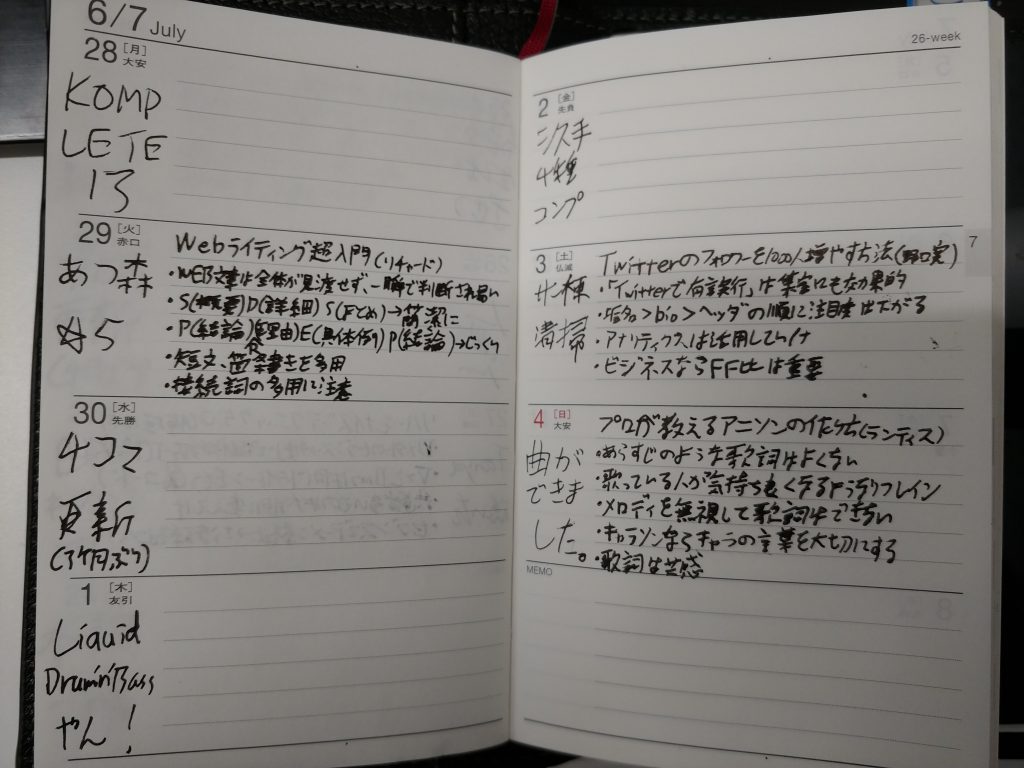 6/7 July
28 [月] 大安
KOMP
LETE
13
29 [火] 赤口
あつ森
☆5
Webライティング超入門(リチャード)
・WEB文章は全体が見渡せず、一瞬で判断され易い
・S(概要)D(詳細)S(まとめ)→簡潔に
・P(結論)R(理由)E(具体例)P(結論)→じっくり
・短文、箇条書きを多用
・接続詞の多用に注意
30 [水] 先勝
4コマ
更新
(3ケ月ぶり)
1 [木] 友引
Liquid
Drum'n'Bass
やん!
26-week
2 [金] 先負
シクス手
4種
コンプ
7
3 [土] 仏滅
北棟
溝掃
Twitterのフォロワーを1000人増やす方法(野口実)
・「Twitterで有言実行」は集客にも効果的
・名>bio>ヘッダの順に注目度は下がる
・アナリティクスは活用していけ
・ビジネスならFF比は重要
4 [日] 大安
曲が
できま
した。
プロが教えるアニソンの作り方(ランティス)
・あらすじのような歌詞はよくない
・歌っている人が気持ち良くなるようなリフレイン
・メロディを無視して歌詞はできない
・キャラソンならキャラの言葉を大切にする
・歌詞は共感
MEMO